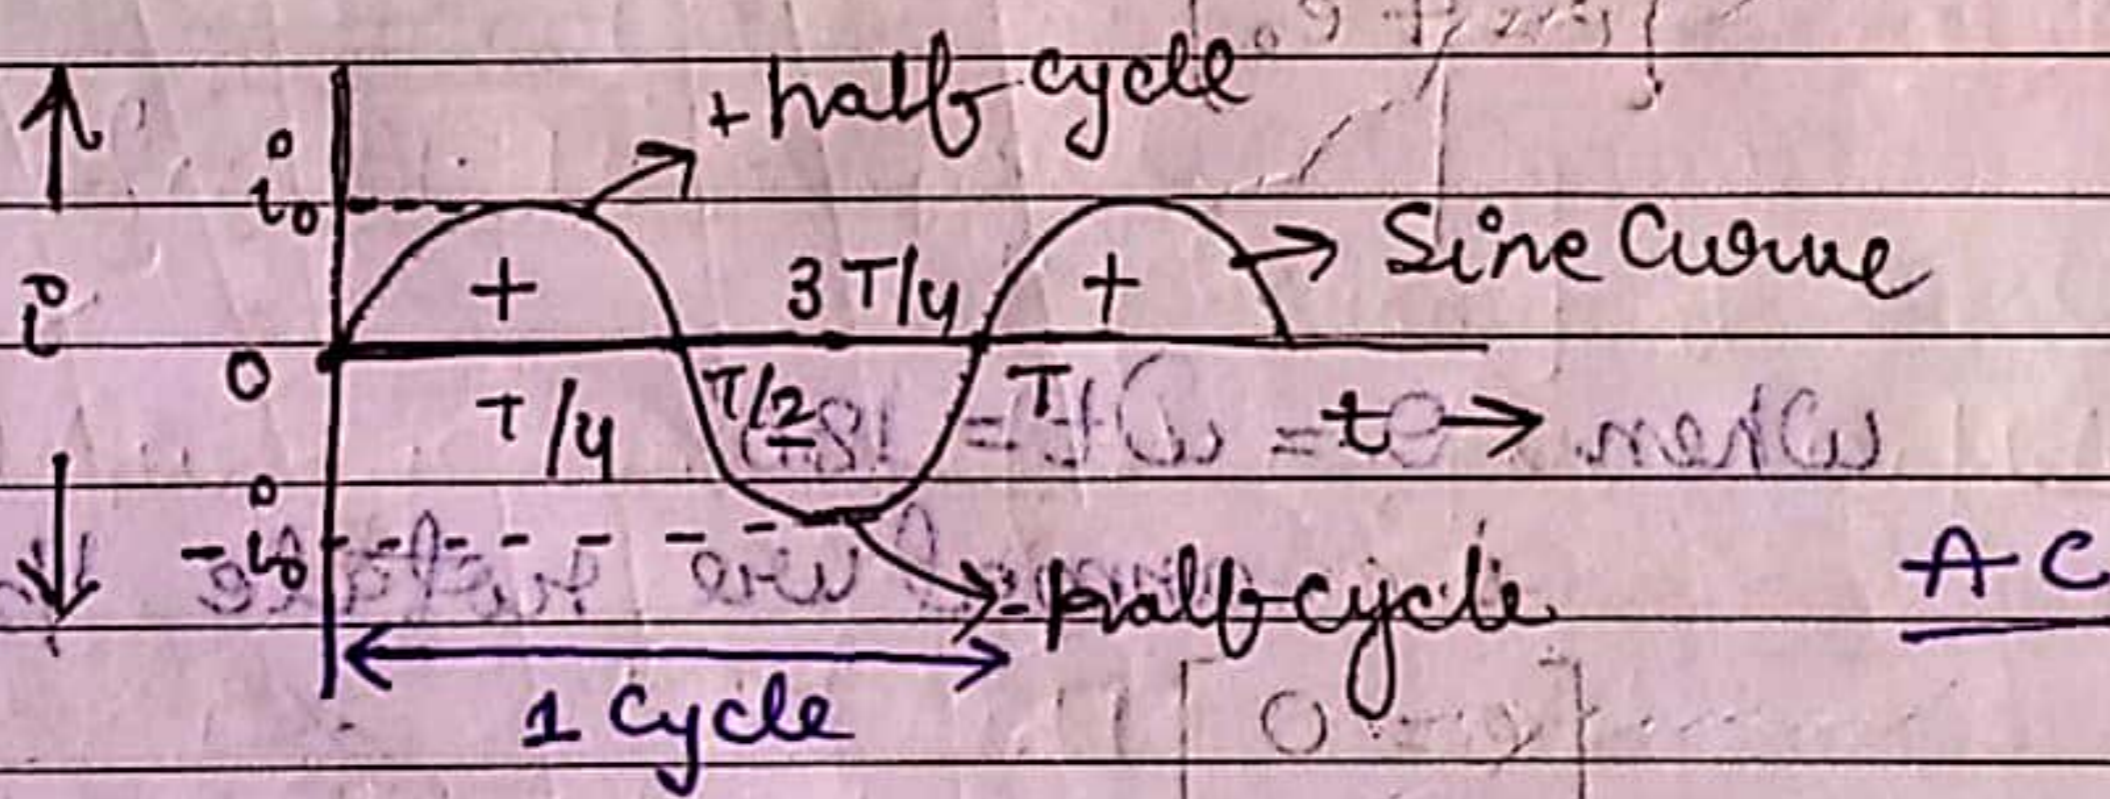 + half cycle
i₀
Sine Curve
+
3T/4
+
i
0
T/4
T/2
T
t →
-i₀
- half cycle
AC
1 Cycle